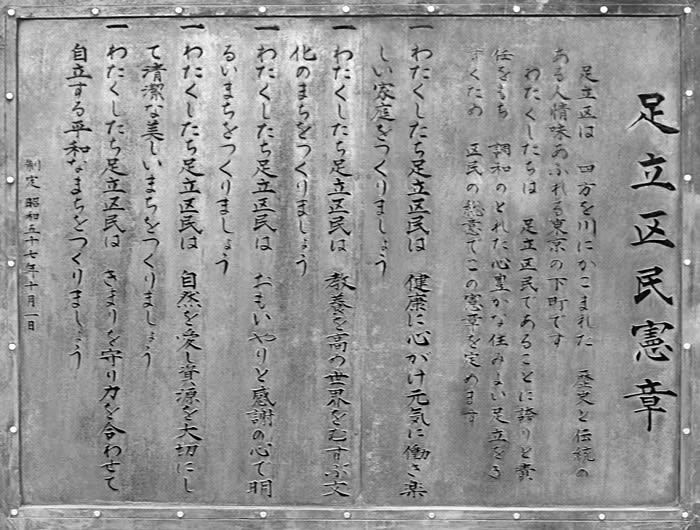 足立区民憲章
足立区は 四方を川にかこまれた 歴史と伝統の
ある人情味あふれる東京の下町です
わたくしたちは 足立区民であることに誇りと責
任をもち 調和のとれた心豊かな住みよい足立をき
ずくため 区民の総意でこの憲章を定めます
一 わたくしたち足立区民は 健康に心がけ元気に働き楽
しい家庭をつくりましょう
一 わたくしたち足立区民は 教養を高め世界をむすぶ文
化のまちをつくりましょう
一 わたくしたち足立区民は おもいやりと感謝の心で明
るいまちをつくりましょう
一 わたくしたち足立区民は 自然を愛し資源を大切にし
て清潔な美しいまちをつくりましょう
一 わたくしたち足立区民は きまりを守り力を合わせて
自立する平和なまちをつくりましょう
制定 昭和五十七年十月一日